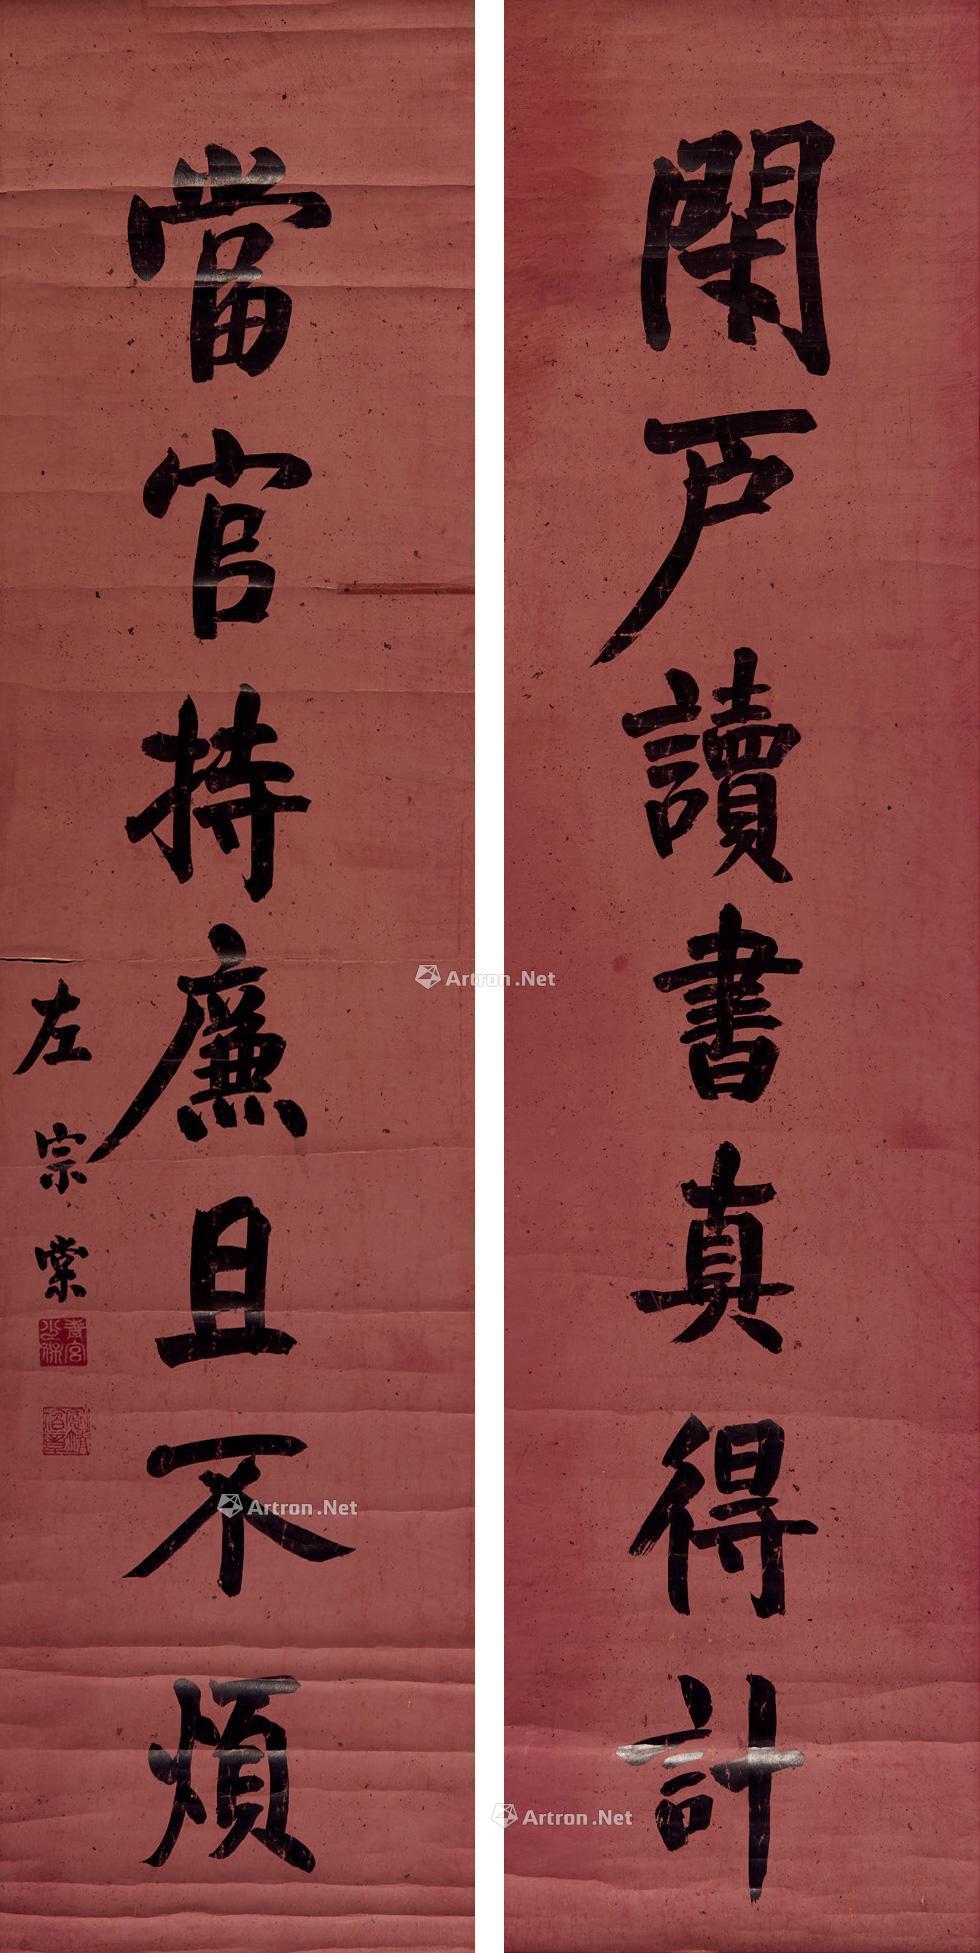 閑戶讀書真得計
當官持廉且不煩
左宗棠
Artron.Net
Artron.Net
Artron.Net